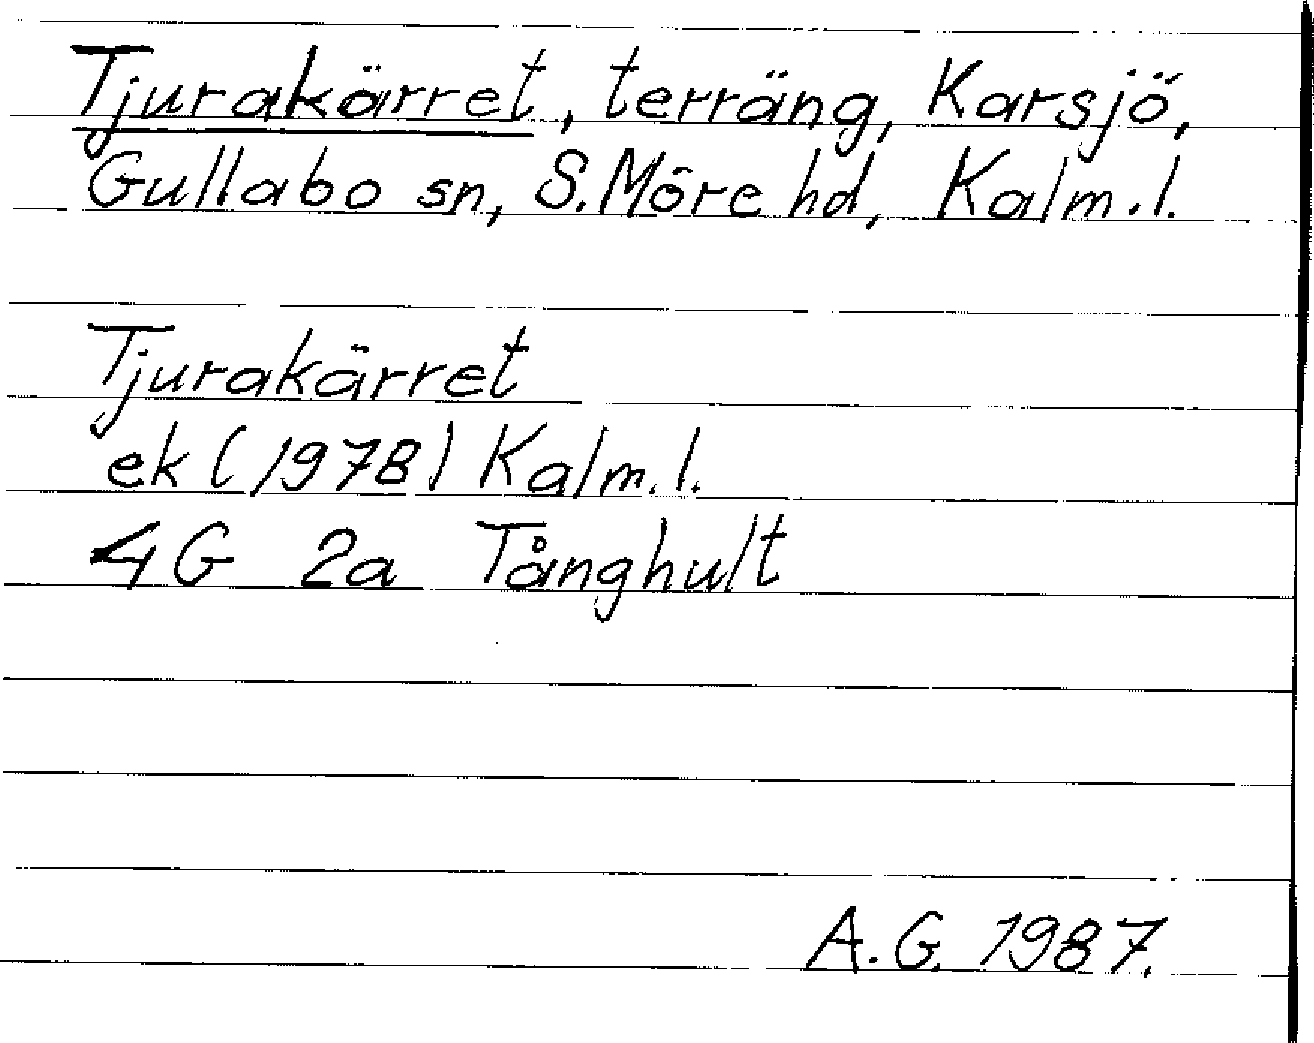 Tjurakärret, terräng, Karsjö,
Gullabo sn, S. Möre hd, Kalm. l.
Tjurakärret
ek (1978) Kalm. l.
4G 2a Tånghult
A. G. 1987.